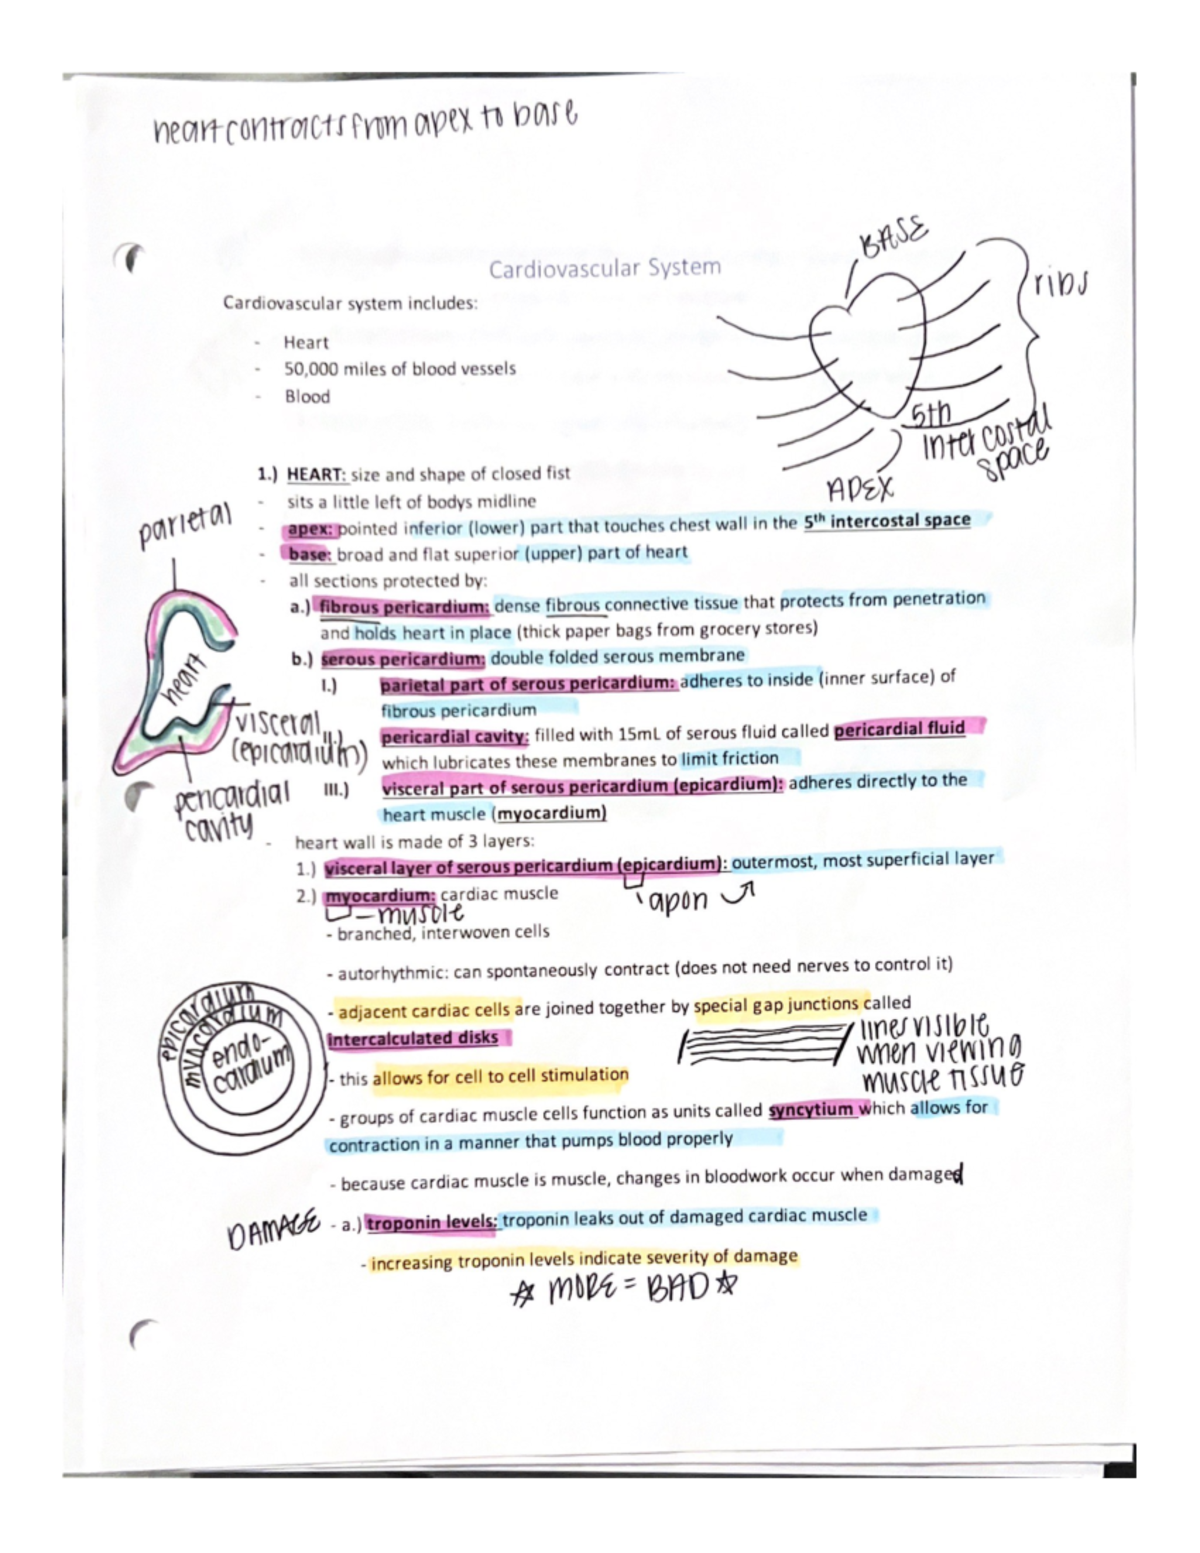 heart contracts from apex to base
BASE
Cardiovascular System
ribs
Cardiovascular system includes:
- Heart
- 50,000 miles of blood vessels
- Blood
5th
intercostal
space
APEX
1.) HEART: size and shape of closed fist
- sits a little left of bodys midline
parietal
- apex: pointed inferior (lower) part that touches chest wall in the 5th intercostal space
- base: broad and flat superior (upper) part of heart
- all sections protected by:
a.) fibrous pericardium: dense fibrous connective tissue that protects from penetration
and holds heart in place (thick paper bags from grocery stores)
b.) serous pericardium: double folded serous membrane
heart
I.) parietal part of serous pericardium: adheres to inside (inner surface) of
fibrous pericardium
visceral
(epicardium)
II.) pericardial cavity: filled with 15mL of serous fluid called pericardial fluid
which lubricates these membranes to limit friction
pericardial
cavity
III.) visceral part of serous pericardium (epicardium): adheres directly to the
heart muscle (myocardium)
- heart wall is made of 3 layers:
1.) visceral layer of serous pericardium (epicardium): outermost, most superficial layer
apon
2.) myocardium: cardiac muscle
- muscle
- branched, interwoven cells
- autorhythmic: can spontaneously contract (does not need nerves to control it)
epicardium
myocardium
endo-
cardium
- adjacent cardiac cells are joined together by special gap junctions called
intercalculated disks
lines visible
when viewing
muscle tissue
- this allows for cell to cell stimulation
- groups of cardiac muscle cells function as units called syncytium which allows for
contraction in a manner that pumps blood properly
- because cardiac muscle is muscle, changes in bloodwork occur when damaged
DAMAGE
- a.) troponin levels: troponin leaks out of damaged cardiac muscle
- increasing troponin levels indicate severity of damage
☆ MORE = BAD ☆